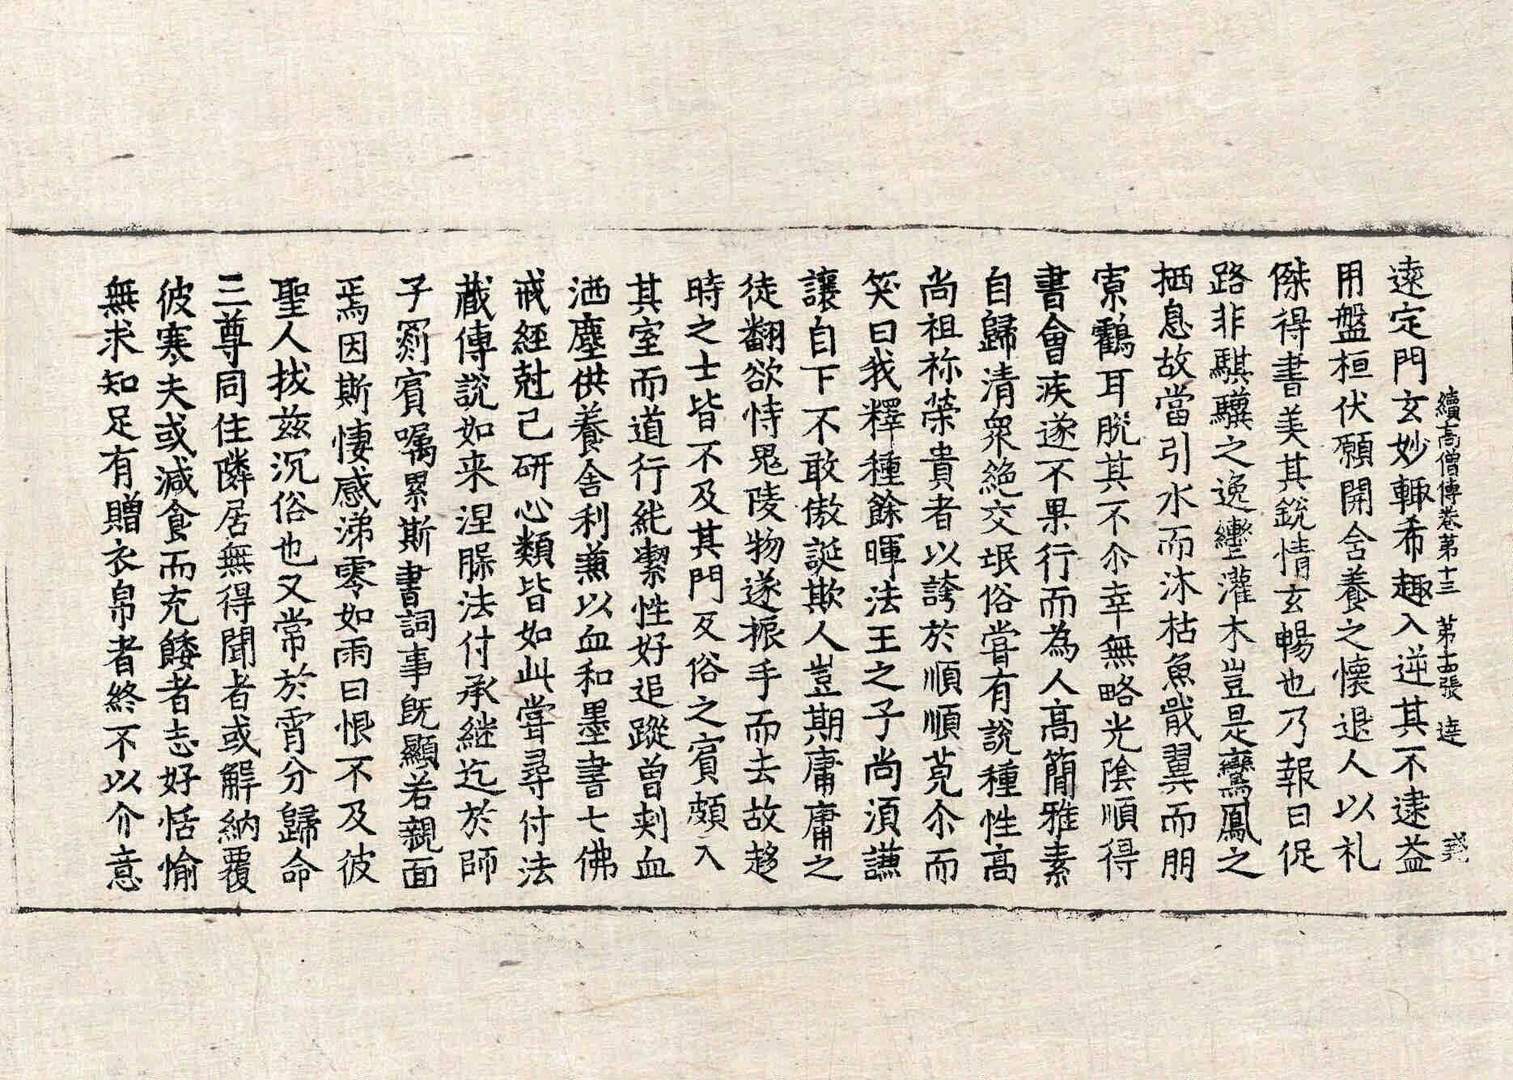 續高僧傳卷第十三　第十五張　逵
遠定門玄妙輒希趣入逆其不逮益
用盤桓伏願開含養之懷退人以礼
傑得書美其銳情玄暢也乃報曰促
路非騏驥之逸轡灌木豈是鸞鳳之
栖息故當引水而沐枯魚戢翼而朋
寮鸖耳脫其不尒幸無略光陰順得
書會疾遂不果行而為人高簡雅素
自歸清眾絕交垊俗嘗有說種性高
尚祖祢榮貴者以誇於順順莧尒而
笑曰我釋種餘暉法王之子尚須謙
讓自下不敢傲誕欺人豈期庸庸之
徒翻欲恃鬼陵物遂振手而去故趍
時之士皆不及其門交俗之賓頗入
其室而道行純潔性好追蹤曾刾血
洒塵供養舍利兼以血和墨書七佛
戒經尅己研心類皆如此甞尋付法
藏傳說如来涅脲法付承継迄於師
子罽賓囑累斯書詞事旣顯若親面
焉因斯悽感涕零如雨曰恨不及彼
聖人拔茲沉俗也又常於宵分歸命
三尊同住隣居無得聞者或解納覆
彼寒夫或減食而充餧者志好恬愉
無求知足有贈衣帛者終不以介意